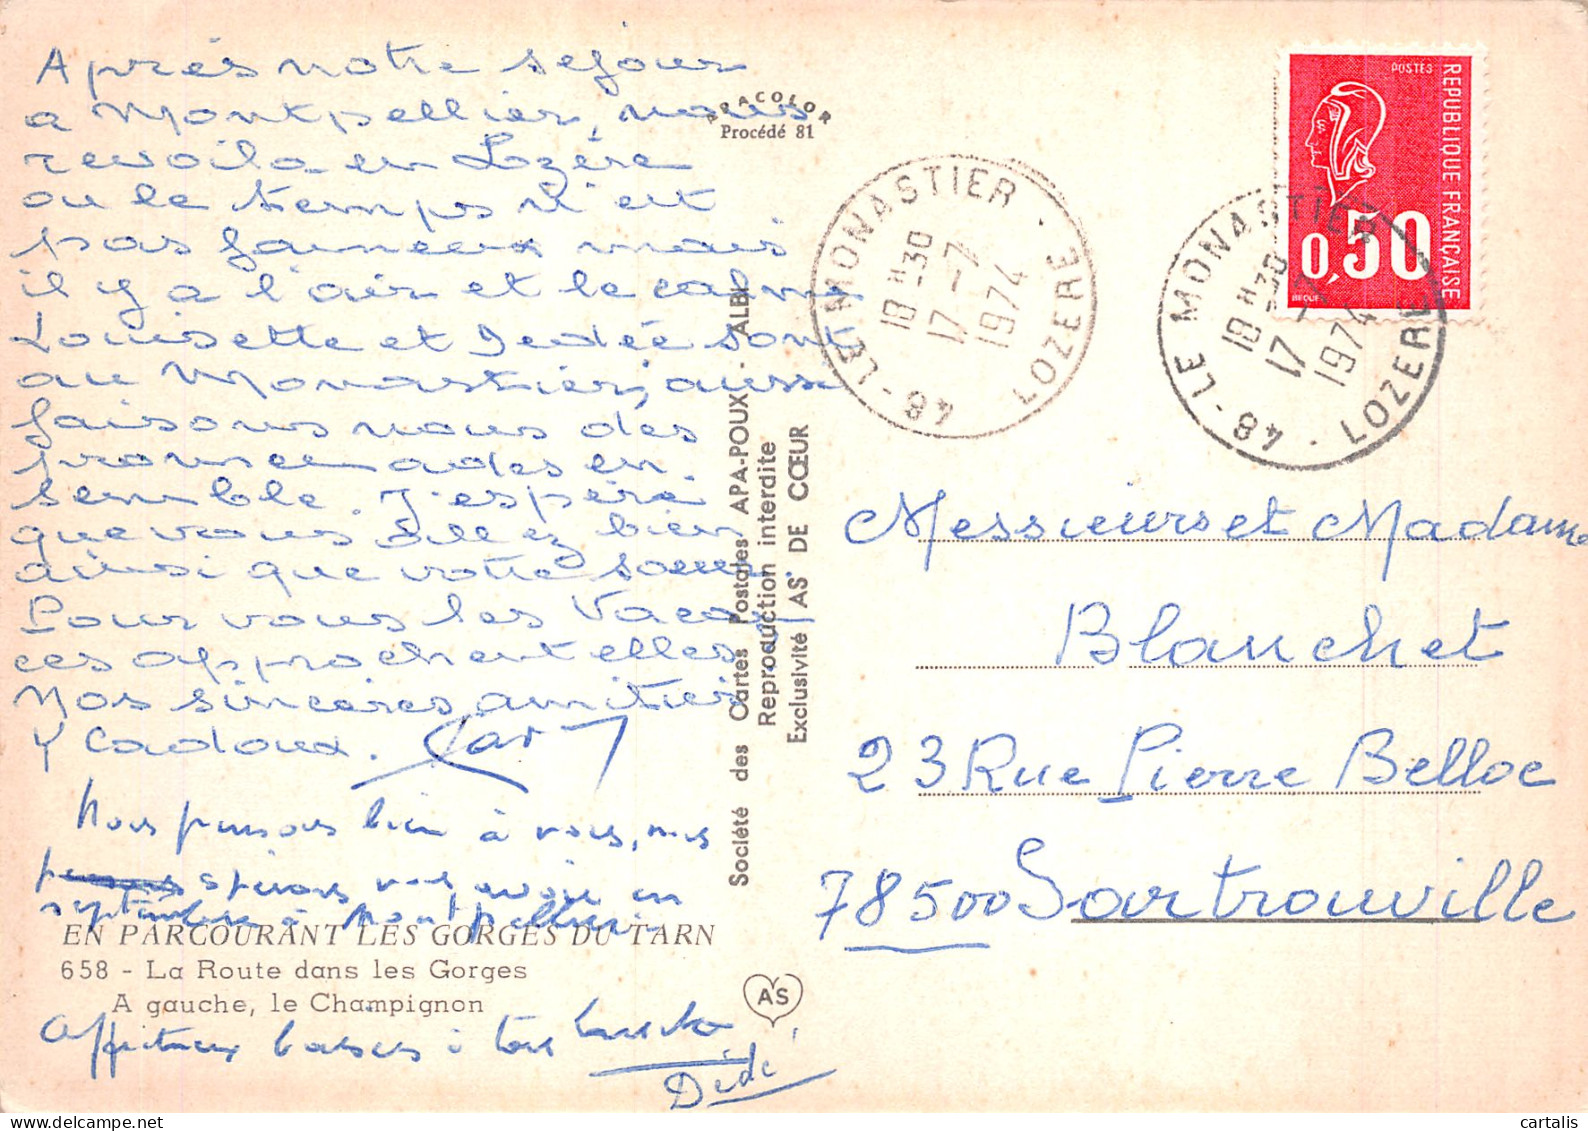 Après notre sejour
a Montpellier, nous
revoila en Lozère
ou le temps n'est
pas fameux mais
il y a l'air et le calme
Louisette et Dédée sont
au Monastier, aussi
faisons nous des
promenades en
semble. J'espère
que vous allez bien
ainsi que votre soeur.
Pour vous les Vacan
ces approchent elles
Nos sincères amitiés
Y Cadoux.
Nous pensons bien à vous, nous
espérons vous avoir en
septembre à Montpellier.
EN PARCOURANT LES GORGES DU TARN
658 - La Route dans les Gorges
A gauche, le Champignon
Affectueux baisers à tous
Louisette
Dédé
APACOLOR
Procédé 81
Société des Cartes Postales APA-POUX - ALBI
Reproduction interdite
Exclusivité "AS DE CŒUR
AS
48 - LE MONASTIER - LOZERE
10 H 30
17 - 7
1974
48 - LE MONASTIER - LOZERE
10 H 30
17 - 7
1974
POSTES
REPUBLIQUE FRANÇAISE
0,50
BEQUET
Messieurs et Madame
Blanchet
23 Rue Pierre Belloc
78500 Sartrouville
cartalis